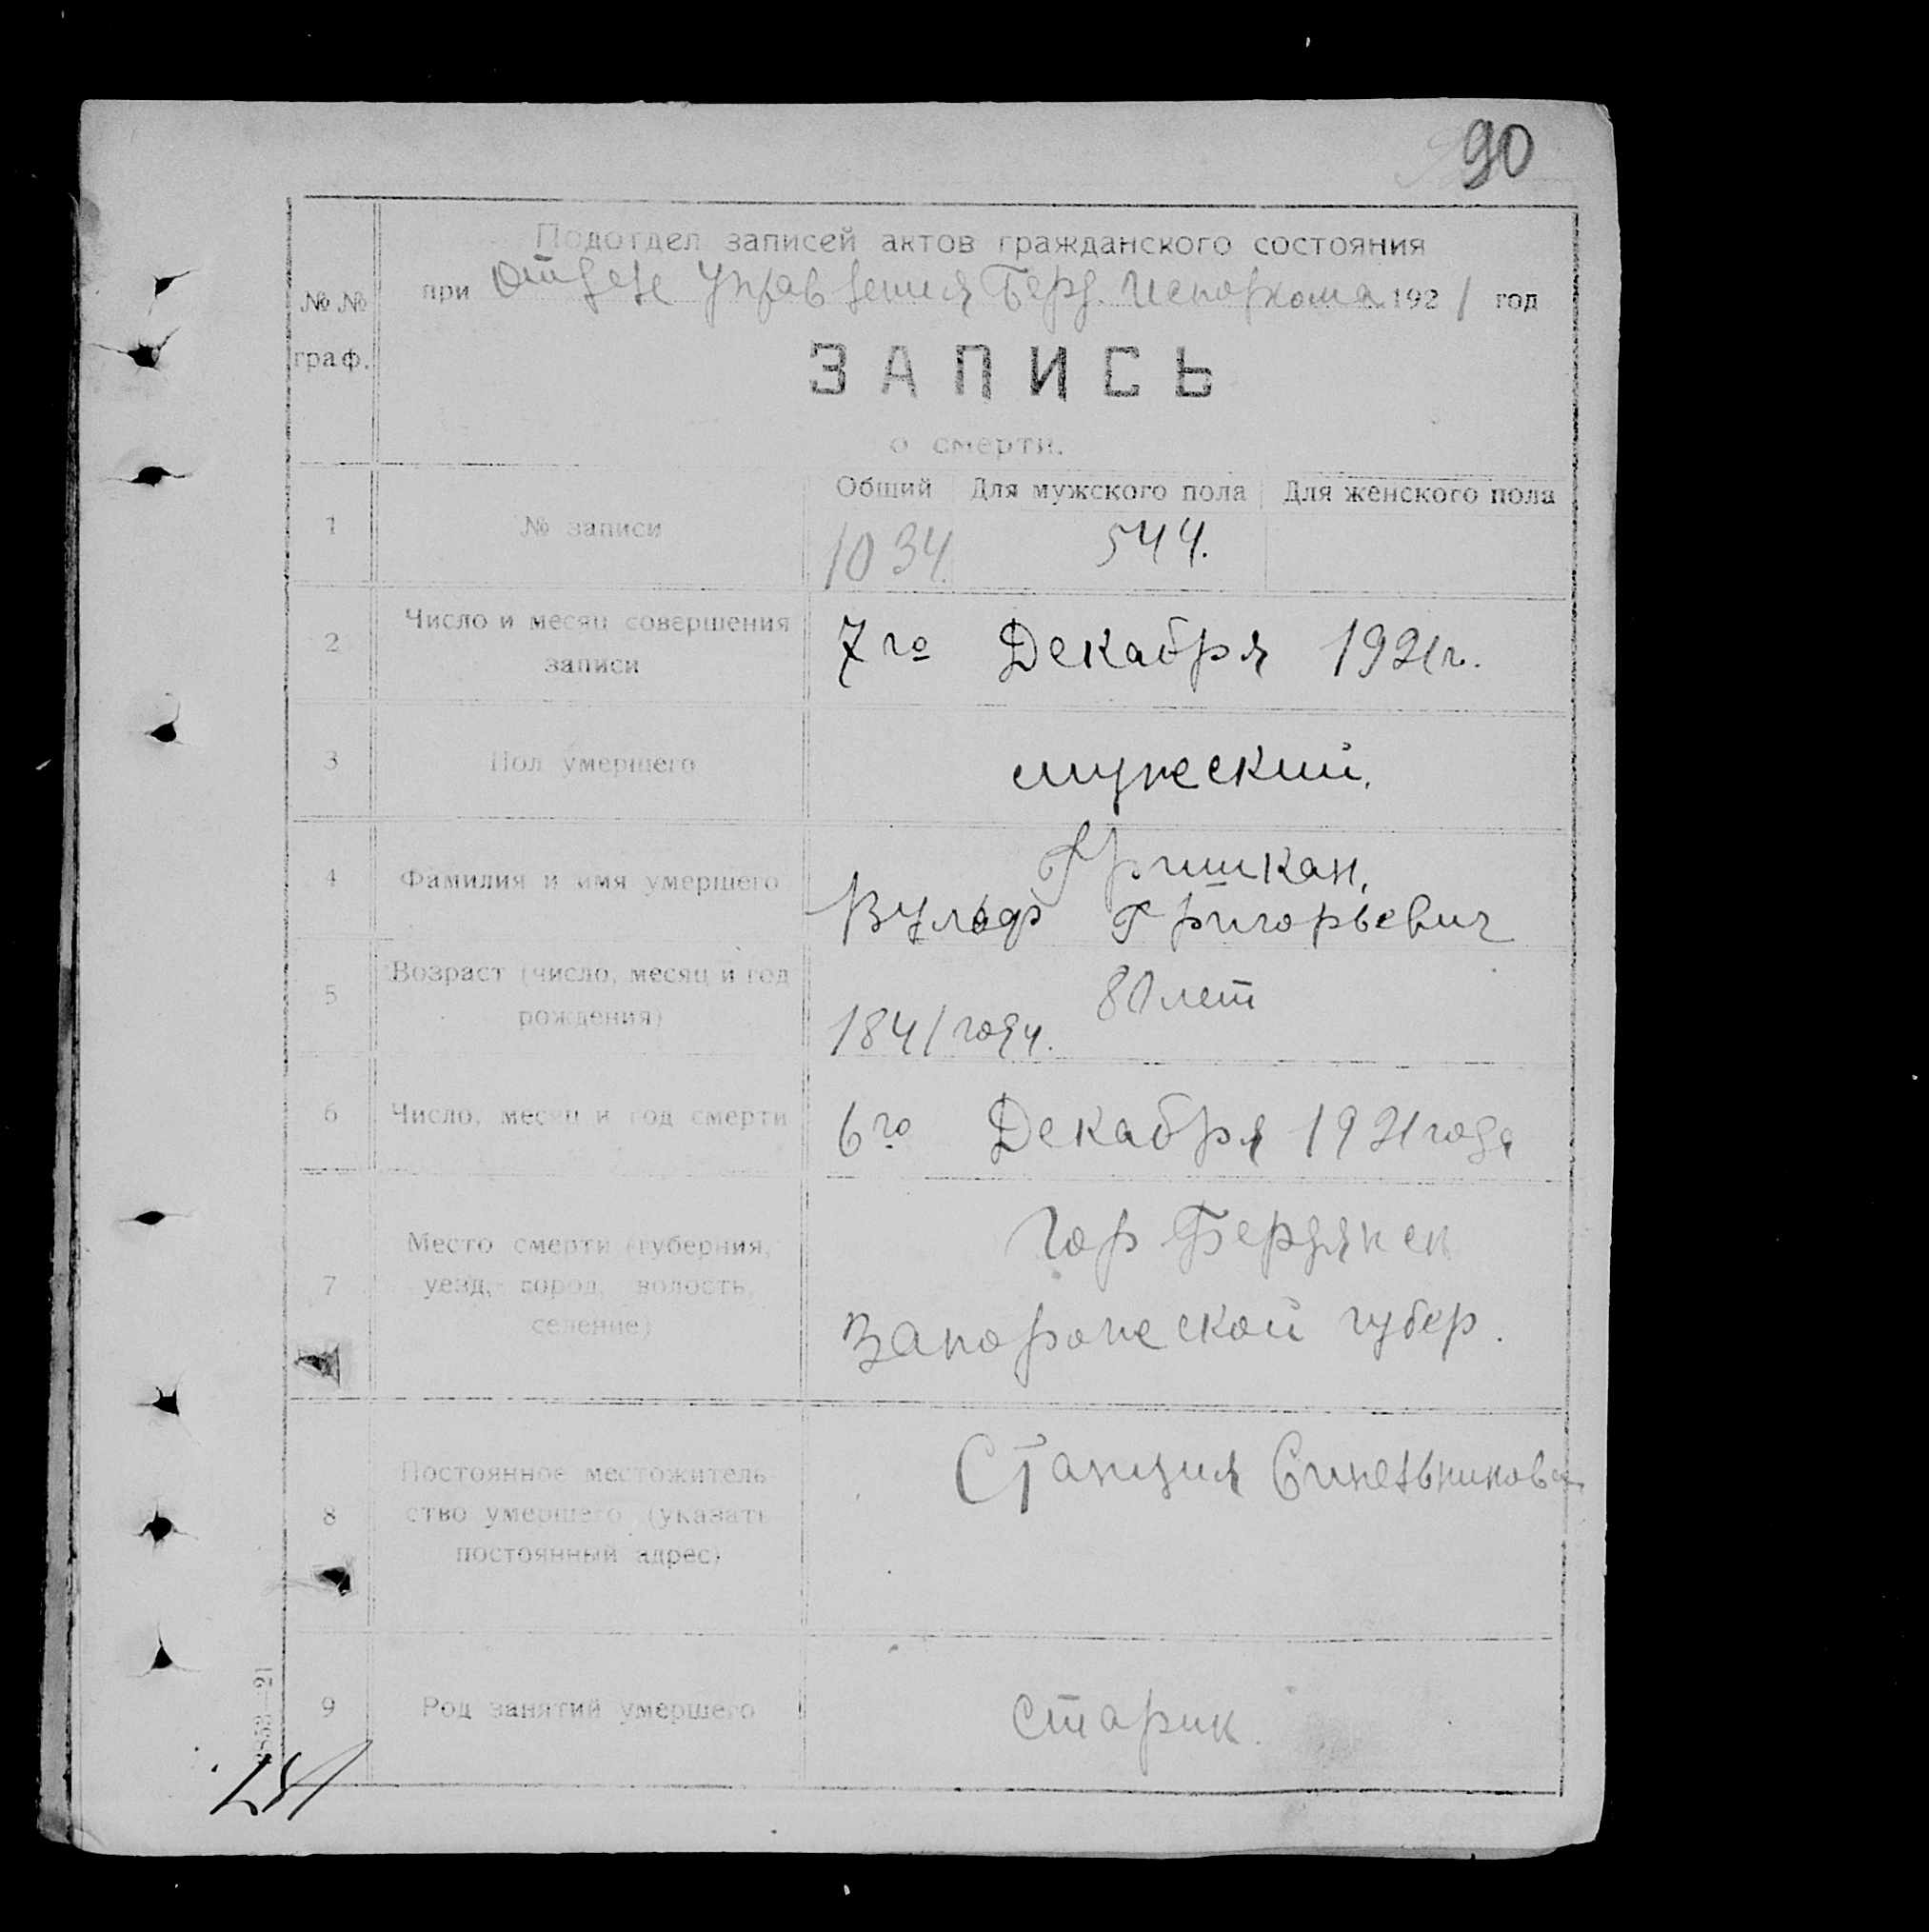 90
Подотдел записей актов гражданского состояния
при Отделе Управления Берд. Исполкома 1921 год
№№
граф.
ЗАПИСЬ
о смерти.
Общий Для мужского пола Для женского пола
1 № записи 1034. 544.
2 Число и месяц совершения
записи
7го Декабря 1921г.
3 Пол умершего мужеский.
4 Фамилия и имя умершего
Фришкан,
Вульф Григорьевич
5 Возраст (число, месяц и год
рождения)
80 лет
1841 году.
6 Число, месяц и год смерти 6го Декабря 1921 года
7 Место смерти (губерния,
уезд, город, волость,
селение)
Гор Бердянск
Запорожеской губер.
8 Постоянное местожитель-
ство умершего (указать
постоянный адрес)
Станция Синельникова
9 Род занятий умершего Старик.